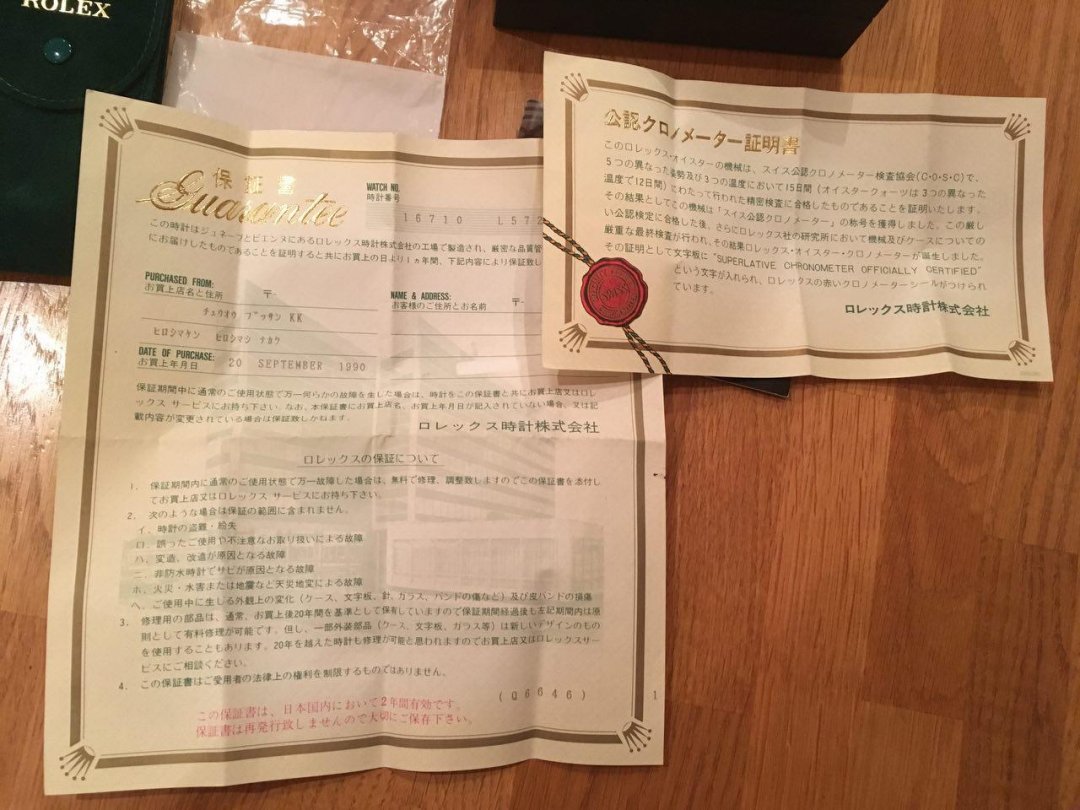 ROLEX
保証書
Guarantee
WATCH NO.
時計番号
16710 L572
この時計はジュネーブとビエンヌにあるロレックス時計株式会社の工場で製造され、厳密な品質管
にお届けしたものであることを証明すると共にお買上の日より1ヵ年間、下記内容により保証致し
PURCHASED FROM:
お買上店名と住所 〒
チュウオウ ブッサン KK
ヒロシマケン ヒロシマシ ナカク
NAME & ADDRESS:
お客様のご住所とお名前 〒
DATE OF PURCHASE:
お買上年月日 20 SEPTEMBER 1990
保証期間中に通常のご使用状態で万一何らかの故障を生じた場合は、時計をこの保証書と共にお買上店又はロレ
ックス サービスにお持ち下さい。なお、本保証書にお買上店名、お買上年月日が記入されていない場合、又は記
載内容が変更されている場合は保証致しかねます。
ロレックス時計株式会社
ロレックスの保証について
1. 保証期間内に通常のご使用状態で万一故障した場合は、無料で修理、調整致しますのでこの保証書を添付し
てお買上店又はロレックス サービスにお持ち下さい。
2. 次のような場合は保証の範囲に含まれません。
イ. 時計の盗難・紛失
ロ. 誤ったご使用や不注意なお取り扱いによる故障
ハ. 変造、改造が原因となる故障
ニ. 非防水時計でサビが原因となる故障
ホ. 火災・水害または地震など天災地変による故障
ヘ. ご使用中に生じる外観上の変化(ケース、文字板、針、ガラス、バンドの傷など)及び皮バンドの損傷
3. 修理用の部品は、通常、お買上後20年間を基準として保有していますので保証期間経過後も左記期間内は原
則として有料修理が可能です。但し、一部外装部品(ケース、文字板、ガラス等)は新しいデザインのもの
を使用することもあります。20年を越えた時計も修理が可能と思われますのでお買上店又はロレックスサー
ビスにご相談ください。
4. この保証書はご愛用者の法律上の権利を制限するものではありません。
(Q6646) 1
この保証書は、日本国内において2年間有効です。
保証書は再発行致しませんので大切にご保存下さい。
公認クロノメーター証明書
このロレックス・オイスターの機械は、スイス公認クロノメーター検査協会(C・O・S・C)で、
5つの異なった姿勢及び3つの温度において15日間(オイスタークォーツは3つの異なった
温度で12日間)にわたって行われた精密検査に合格したものであることを証明いたします。
その結果としてこの機械は「スイス公認クロノメーター」の称号を獲得しました。この厳し
い公認検定に合格した後、さらにロレックス社の研究所において機械及びケースについての
厳重な最終検査が行われ、その結果ロレックス・オイスター・クロノメーターが誕生しました。
その証明として文字板に"SUPERLATIVE CHRONOMETER OFFICIALLY CERTIFIED"
という文字が入れられ、ロレックスの赤いクロノメーターシールがつけられ
ています。
ロレックス時計株式会社